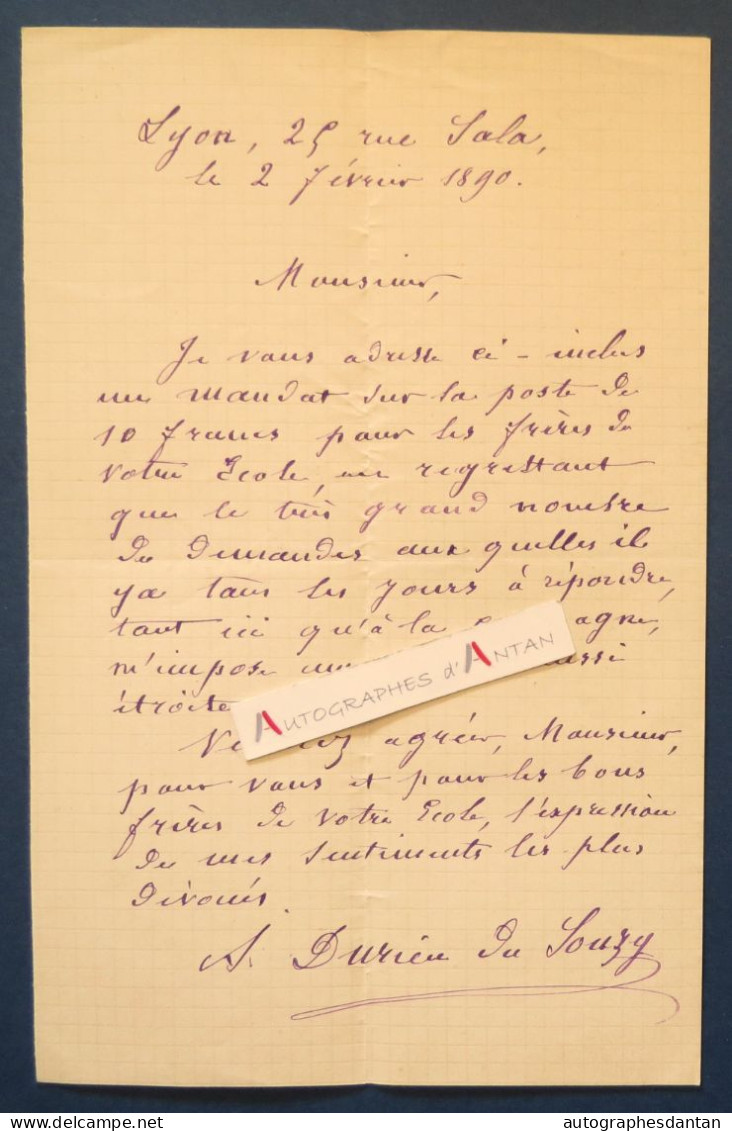 Lyon, 25 rue Sala,
le 2 février 1890.
Monsieur,
Je vous adresse ci-inclus
un mandat sur la poste de
10 francs pour les frères de
votre École, en regrettant
que le très grand nombre
de demandes aux quelles il
y a tous les jours à répondre,
tant ici qu'à la agne,
m'impose une aussi
étroite
AUTOGRAPHES d'ANTAN
agréer, Monsieur,
pour vous et pour les bons
frères de votre École, l'expression
de mes sentiments les plus
dévoués.
A. Durieu du Souzy
autographesdantan